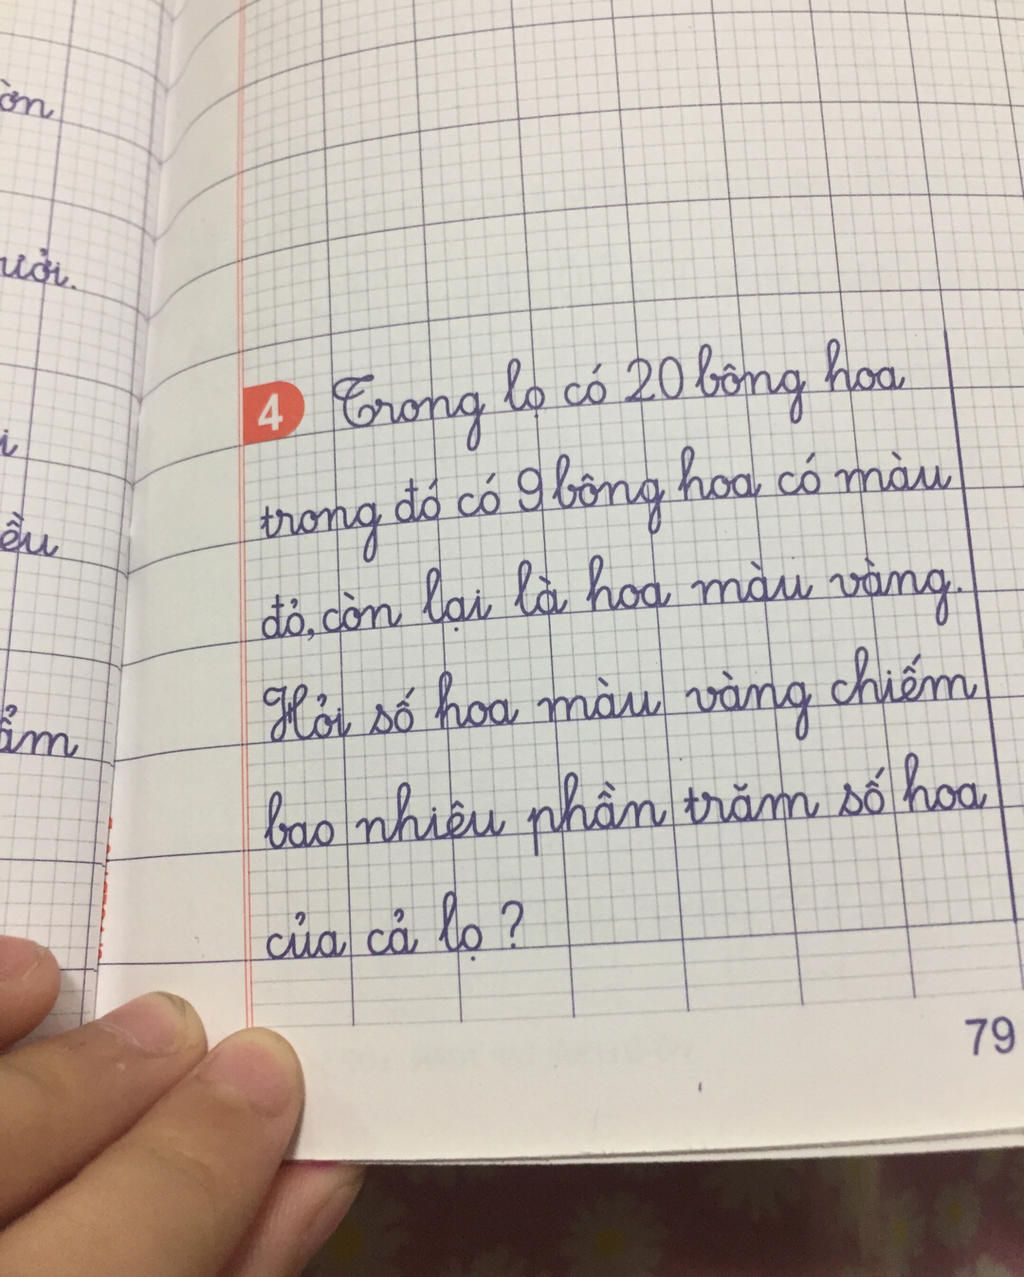 òn
ười.
i
ều
ẩm
4 Trong lọ có 20 bông hoa
trong đó có 9 bông hoa có màu
đỏ, còn lại là hoa màu vàng.
Hỏi số hoa màu vàng chiếm
bao nhiêu phần trăm số hoa
của cả lọ?
79